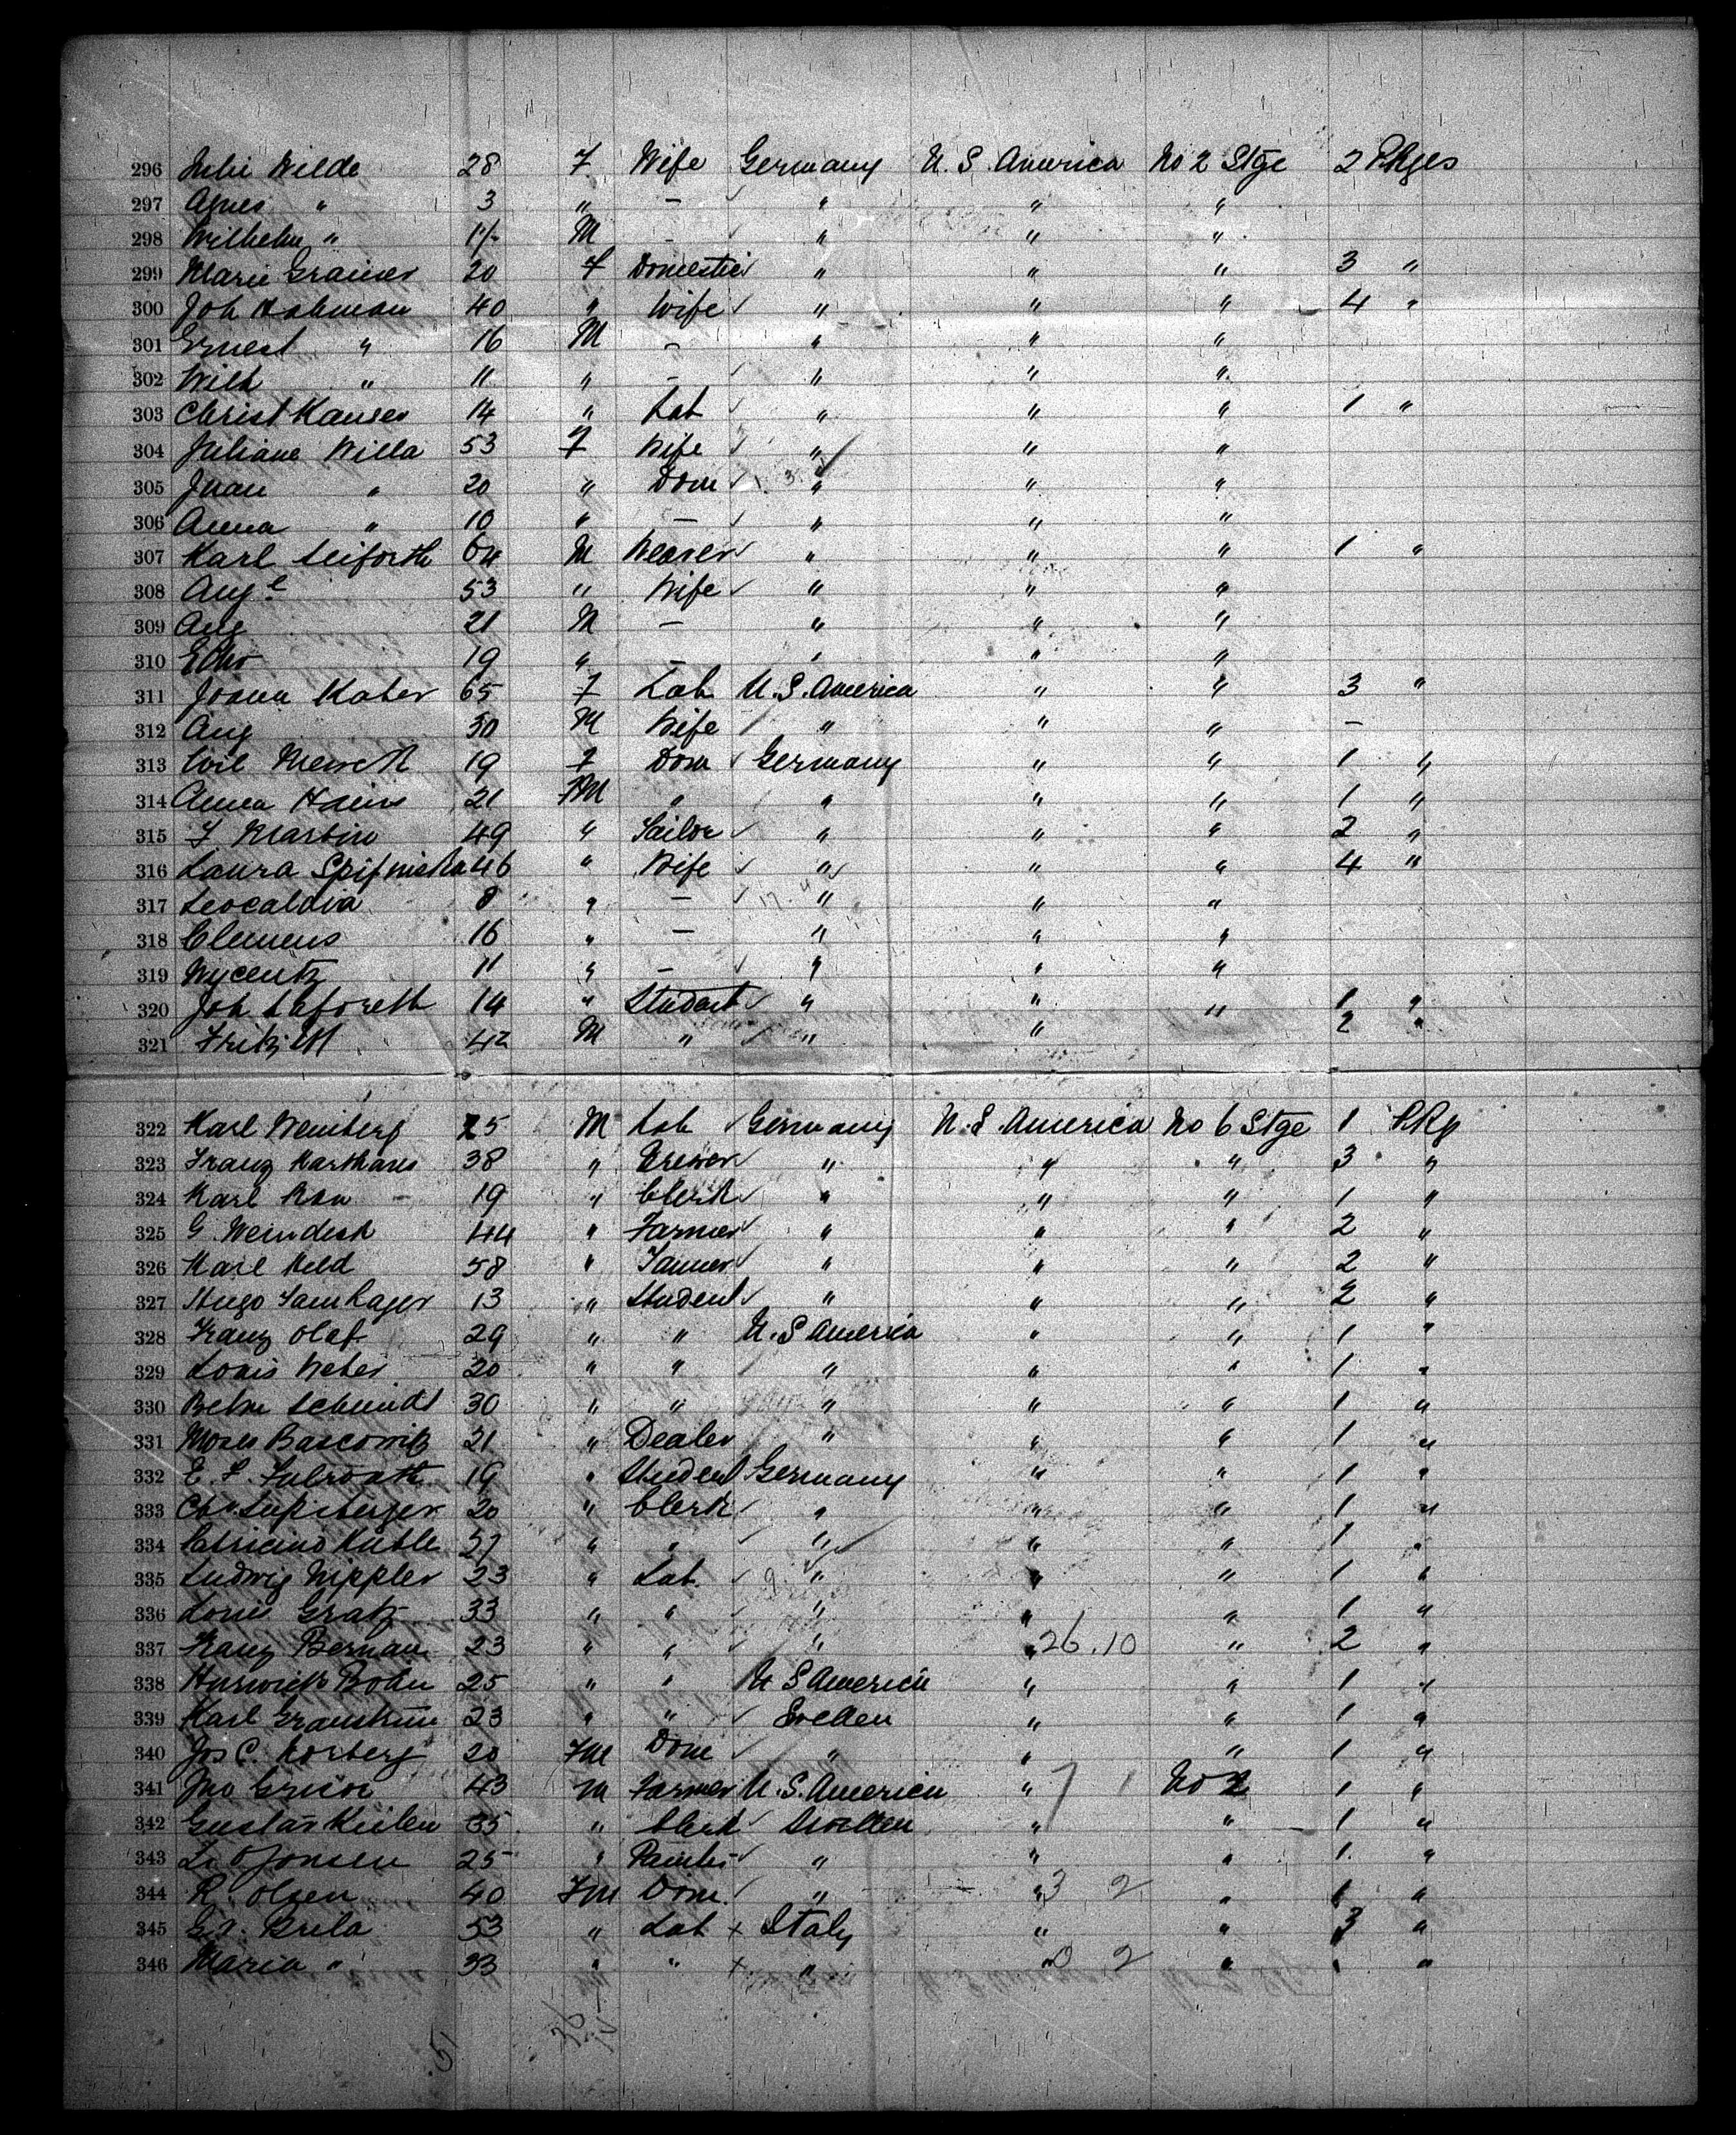 296 Julie Wilde 28 F Wife Germany U. S. America No 2 Stge 2 Pkges
297 Agnes " 3 " — " " "
298 Wilhelm " M — " " "
299 Marie Grauser 20 F Domestic " " " 3 "
300 Joh Hohman 40 " Wife " " " 4 "
301 Ernest " 16 M — " " "
302 Wilh " 11 " — " " "
303 Christ Kauser 14 " Lab " " " 1 "
304 Juliane Willa 53 F Wife " " "
305 Juan " 20 " Dom " " "
306 Anna " 10 " — " " "
307 Karl Seiforth 64 M Weaver " " " 1 "
308 Aug e 53 " Wife " " "
309 Aug 21 M — " " "
310 19 " — " " "
311 Joana Kater 65 F Lab U. S. America " " 3 "
312 Aug 30 M Wife " " " —
313 19 F Dom Germany " " 1 "
314 Anna Hains 21 FM " " " " 1 "
315 F Martin 49 " Sailor " " " 2 "
316 Laura 46 " Wife " " " 4 "
317 Leocaldia 8 " — " " "
318 Clemens 16 " — " " "
319 Wycentz 11 " — " " "
320 Joh Laforeth 14 " Student " " " 1 "
321 Fritz M 42 M " " " 2 "
322 Karl Weinberg 25 M Lab Germany U. S. America No 6 Stge 1 Pkg
323 Franz Karthaus 38 " Brewer " " " 3 "
324 Karl Rau 19 " Clerk " " " 1 "
325 G. Weindesh 44 " Farmer " " " 2 "
326 Karl Held 58 " Tanner " " " 2 "
327 Hugo Samhager 13 " Student " " " 2 "
328 Franz Olaf 29 " " U. S America " " 1 "
329 Louis Weber 20 " " " " " 1 "
330 Schmidt 30 " " " " " 1 "
331 Moses Bascowitz 21 " Dealer " " " 1 "
332 E. F. 19 " Student Germany " " 1 "
333 20 " Clerk " " " 1 "
334 " " " " " 1 "
335 Ludwig Nippler 23 " Lab. " " " 1 "
336 Louis Gratz 33 " " " " " 1 "
337 Franz Bernau 23 " " " " 26.10 " 2 "
338 Bohn 25 " " U S America " " 1 "
339 Karl 23 " " Sweden " " 1 "
340 Jos C. Korberg 20 FM Dom " " " 1 "
341 Jno 43 M Farmer U. S. America " No 2 1 "
342 Gustav 35 " Clerk Sweden " " 1 "
343 25 " Painter " " " 1 "
344 R. Olsen 40 FM Dom " " 3 2 " 1 "
345 53 " Lab + Italy " " 3 "
346 Maria " 33 " " + " " 2 " "